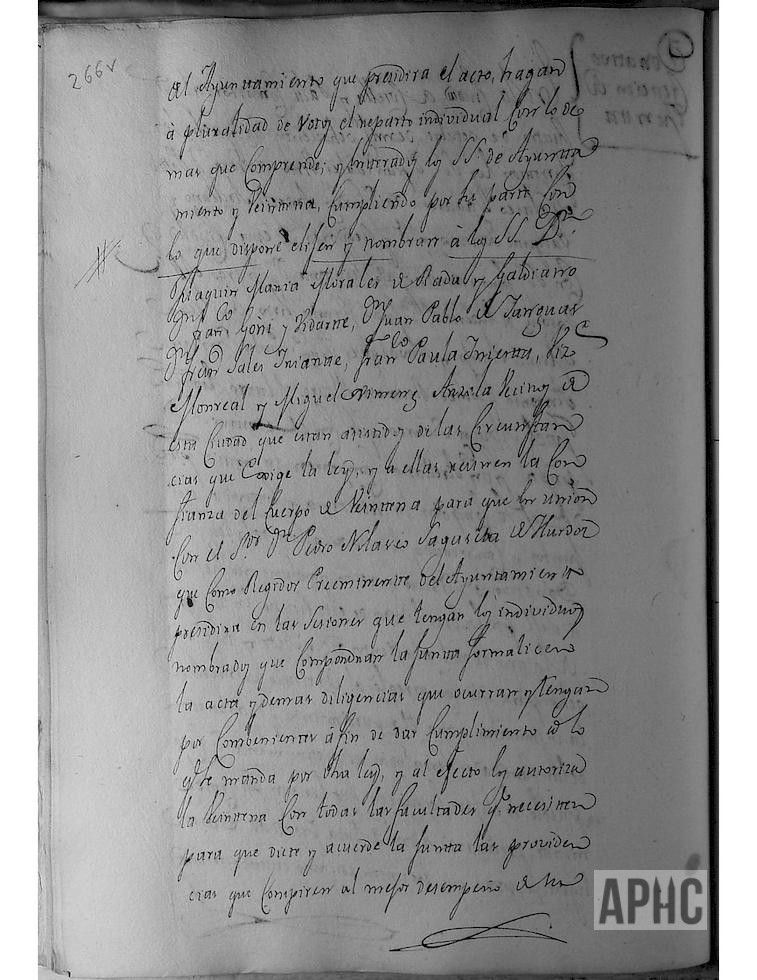 266v
del Ayunttamiento que presidira el acto, hagan
à pluralidad de votos el reparto individual con lo de
mas que comprende; y enterados los SS. de Ayuntta
miento y Veintena, cumpliendo por su parte con
lo que dispone elisen y nombran à los SS. Dn.
Joaquin Maria Morales de Rada y Galdiano
Dn. Franco. Goñi y Vidarte, Dn. Juan Pablo de Jarquas
Dn. Sales Franco. Paula
Monreal y Miguel Ximenez Anzola Vecinos de
esta Ciudad que estan asistidos de las Circunstan
cias que exige la ley, y a ellas reunen la Con
fianza del Cuerpo de Veintena para que en union
con el Sor. Dn. Pedro Nolasco Sagaseta de Ylurdoz
que como Regidor Preeminente del Ayuntamiento
presidira en las sesiones que tengan los individuos
nombrados que compondran la Juntta formalicen
la acta y demas diligencias que ocurran y tengan
por combenientes á fin de dar cumplimiento à lo
qe. se manda por dha ley, y al efecto los autoriza
la Veintena con todas las facultades qe. necesiten
para que dicte y acuerde la Juntta las providen
cias que conspiren al mejor desempeño de su
APHC